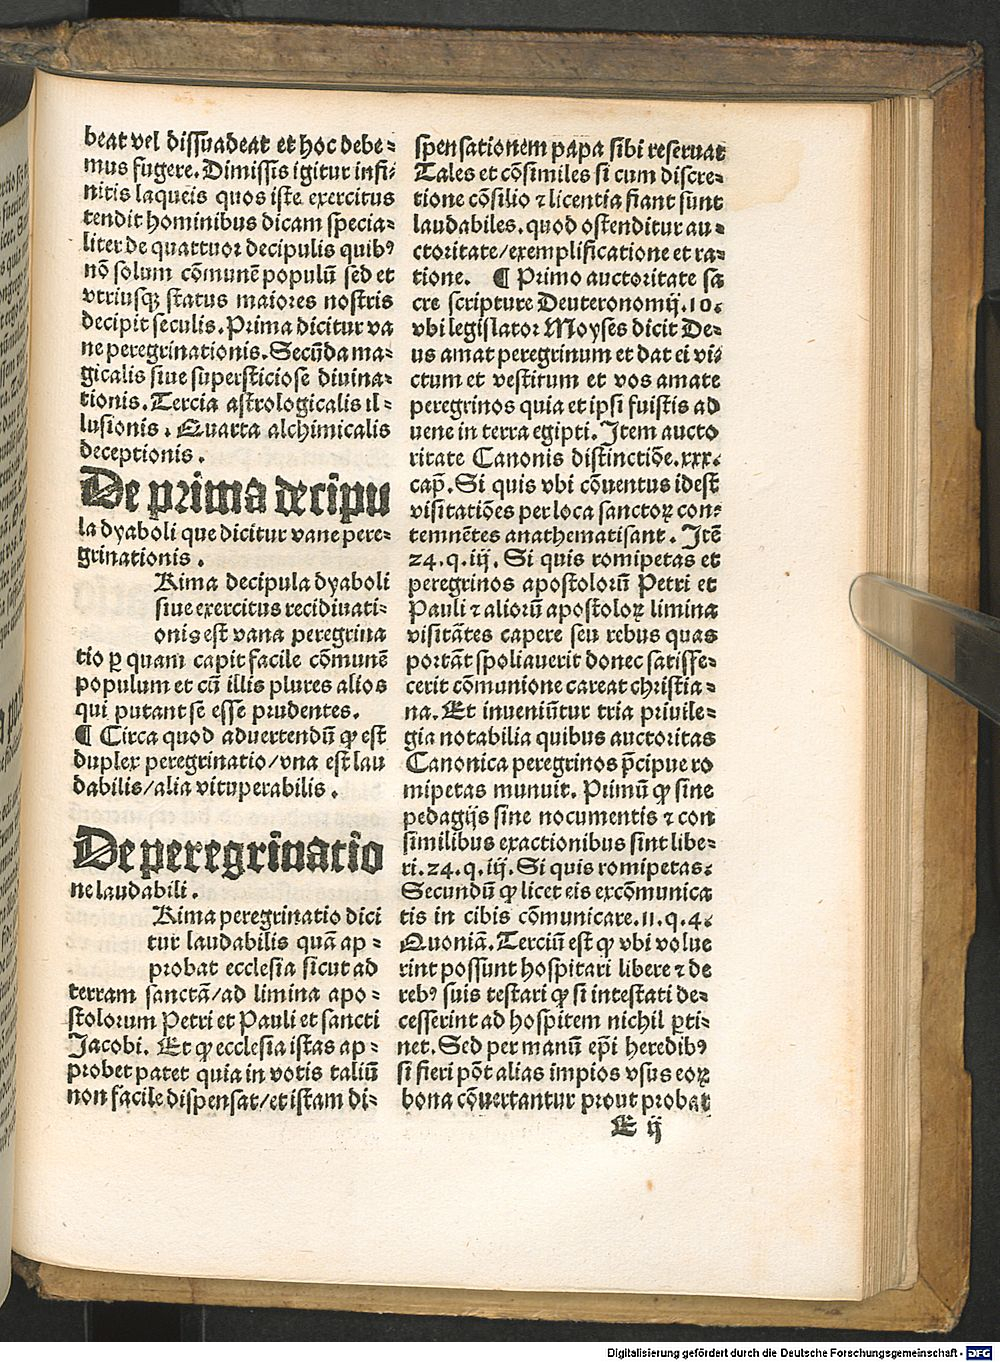 beat vel dissuadeat et hoc debe⸗
mus fugere. Dimissis igitur infi⸗
nitis laqueis quos iste exercitus
tendit hominibus dicam specia⸗
liter de quattuor decipulis quibꝰ
nō solum cōmunē populū sed et
vtriusqꝫ status maiores nostris
decipit seculis. Prima dicitur va
ne peregrinationis. Secūda ma⸗
gicalis siue supersticiose diuina⸗
tionis. Tercia astrologicalis il⸗
lusionis. Quarta alchimicalis
deceptionis.
De prima decipu
la dyaboli que dicitur vane pere⸗
grinationis.
Rima decipula dyaboli
siue exercitus recidiuati⸗
onis est vana peregrina
tio ꝑ quam capit facile cōmunē
populum et cū illis plures alios
qui putant se esse prudentes.
¶ Circa quod aduertendū ꝙ est
duplex peregrinatio/vna est lau
dabilis/alia vituperabilis.
De peregrinatio
ne laudabili.
Rima peregrinatio dici
tur laudabilis quā ap⸗
probat ecclesia sicut ad
terram sanctā/ad limina apo⸗
stolorum Petri et Pauli et sancti
Jacobi. Et ꝙ ecclesia istas ap⸗
probet patet quia in votis taliū
non facile dispensat/et istam di⸗
spensationem papa sibi reseruat
Tales et cōsimiles si cum discre⸗
tione cōsilio ⁊ licentia fiant sunt
laudabiles. quod ostenditur au⸗
ctoritate/exemplificatione et ra⸗
tione. ¶ Primo auctoritate sa
cre scripture Deuteronomij. 10.
vbi legislator Moyses dicit De⸗
us amat peregrinum et dat ei vi⸗
ctum et vestitum et vos amate
peregrinos quia et ipsi fuistis ad
uene in terra egipti. Item aucto
ritate Canonis distinctiōe. xxx.
cap̄. Si quis vbi cōuentus idest
visitatiōes per loca sanctoꝝ con⸗
temnētes anathematisant. Itē
24. q. iij. Si quis romipetas et
peregrinos apostolorū Petri et
Pauli ⁊ aliorū apostoloꝝ limina
visitātes capere seu rebus quas
portāt spoliauerit donec satisfe⸗
cerit cōmunione careat christia⸗
na. Et inueniūtur tria priuile⸗
gia notabilia quibus auctoritas
Canonica peregrinos p̄cipue ro
mipetas munuit. Primū ꝙ sine
pedagijs sine nocumentis ⁊ con
similibus exactionibus sint libe⸗
ri. 24. q. iij. Si quis romipetas.
Secundū ꝙ licet eis excōmunica
tis in cibis cōmunicare. 11. q. 4.
Quoniā. Terciū est ꝙ vbi volue
rint possunt hospitari libere ⁊ de
rebꝰ suis testari ꝙ si intestati de⸗
cesserint ad hospitem nichil ꝑti⸗
net. Sed per manū ep̄i heredibꝰ
si fieri pōt alias impios vsus eoꝝ
bona cōuertantur prout probat
E ij
Digitalisierung gefördert durch die Deutsche Forschungsgemeinschaft - DFG